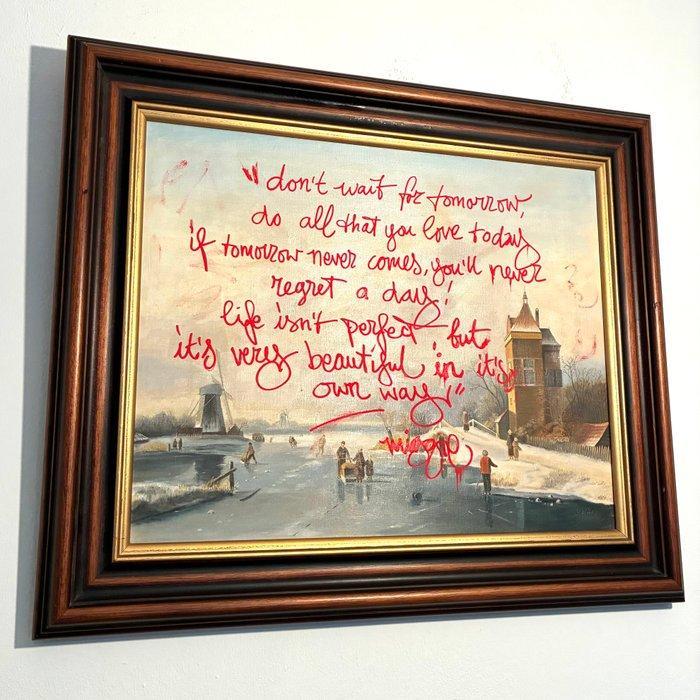 "don't wait for tomorrow,
do all that you love today
if tomorrow never comes, you'll never
regret a day!
life isn't perfect, but
it's very beautiful in it's
own way!"